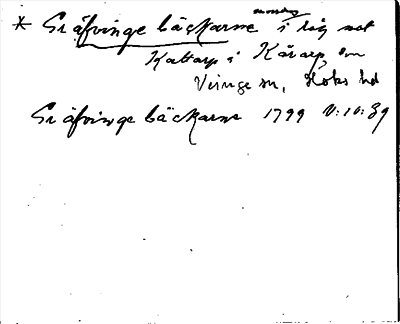 * Gräfvinge bäckarne i täg mot
Kattarp i Kårarp, en
Veinge sn, Höks hd
Gräfvinge bäckarne 1799 V:10:39